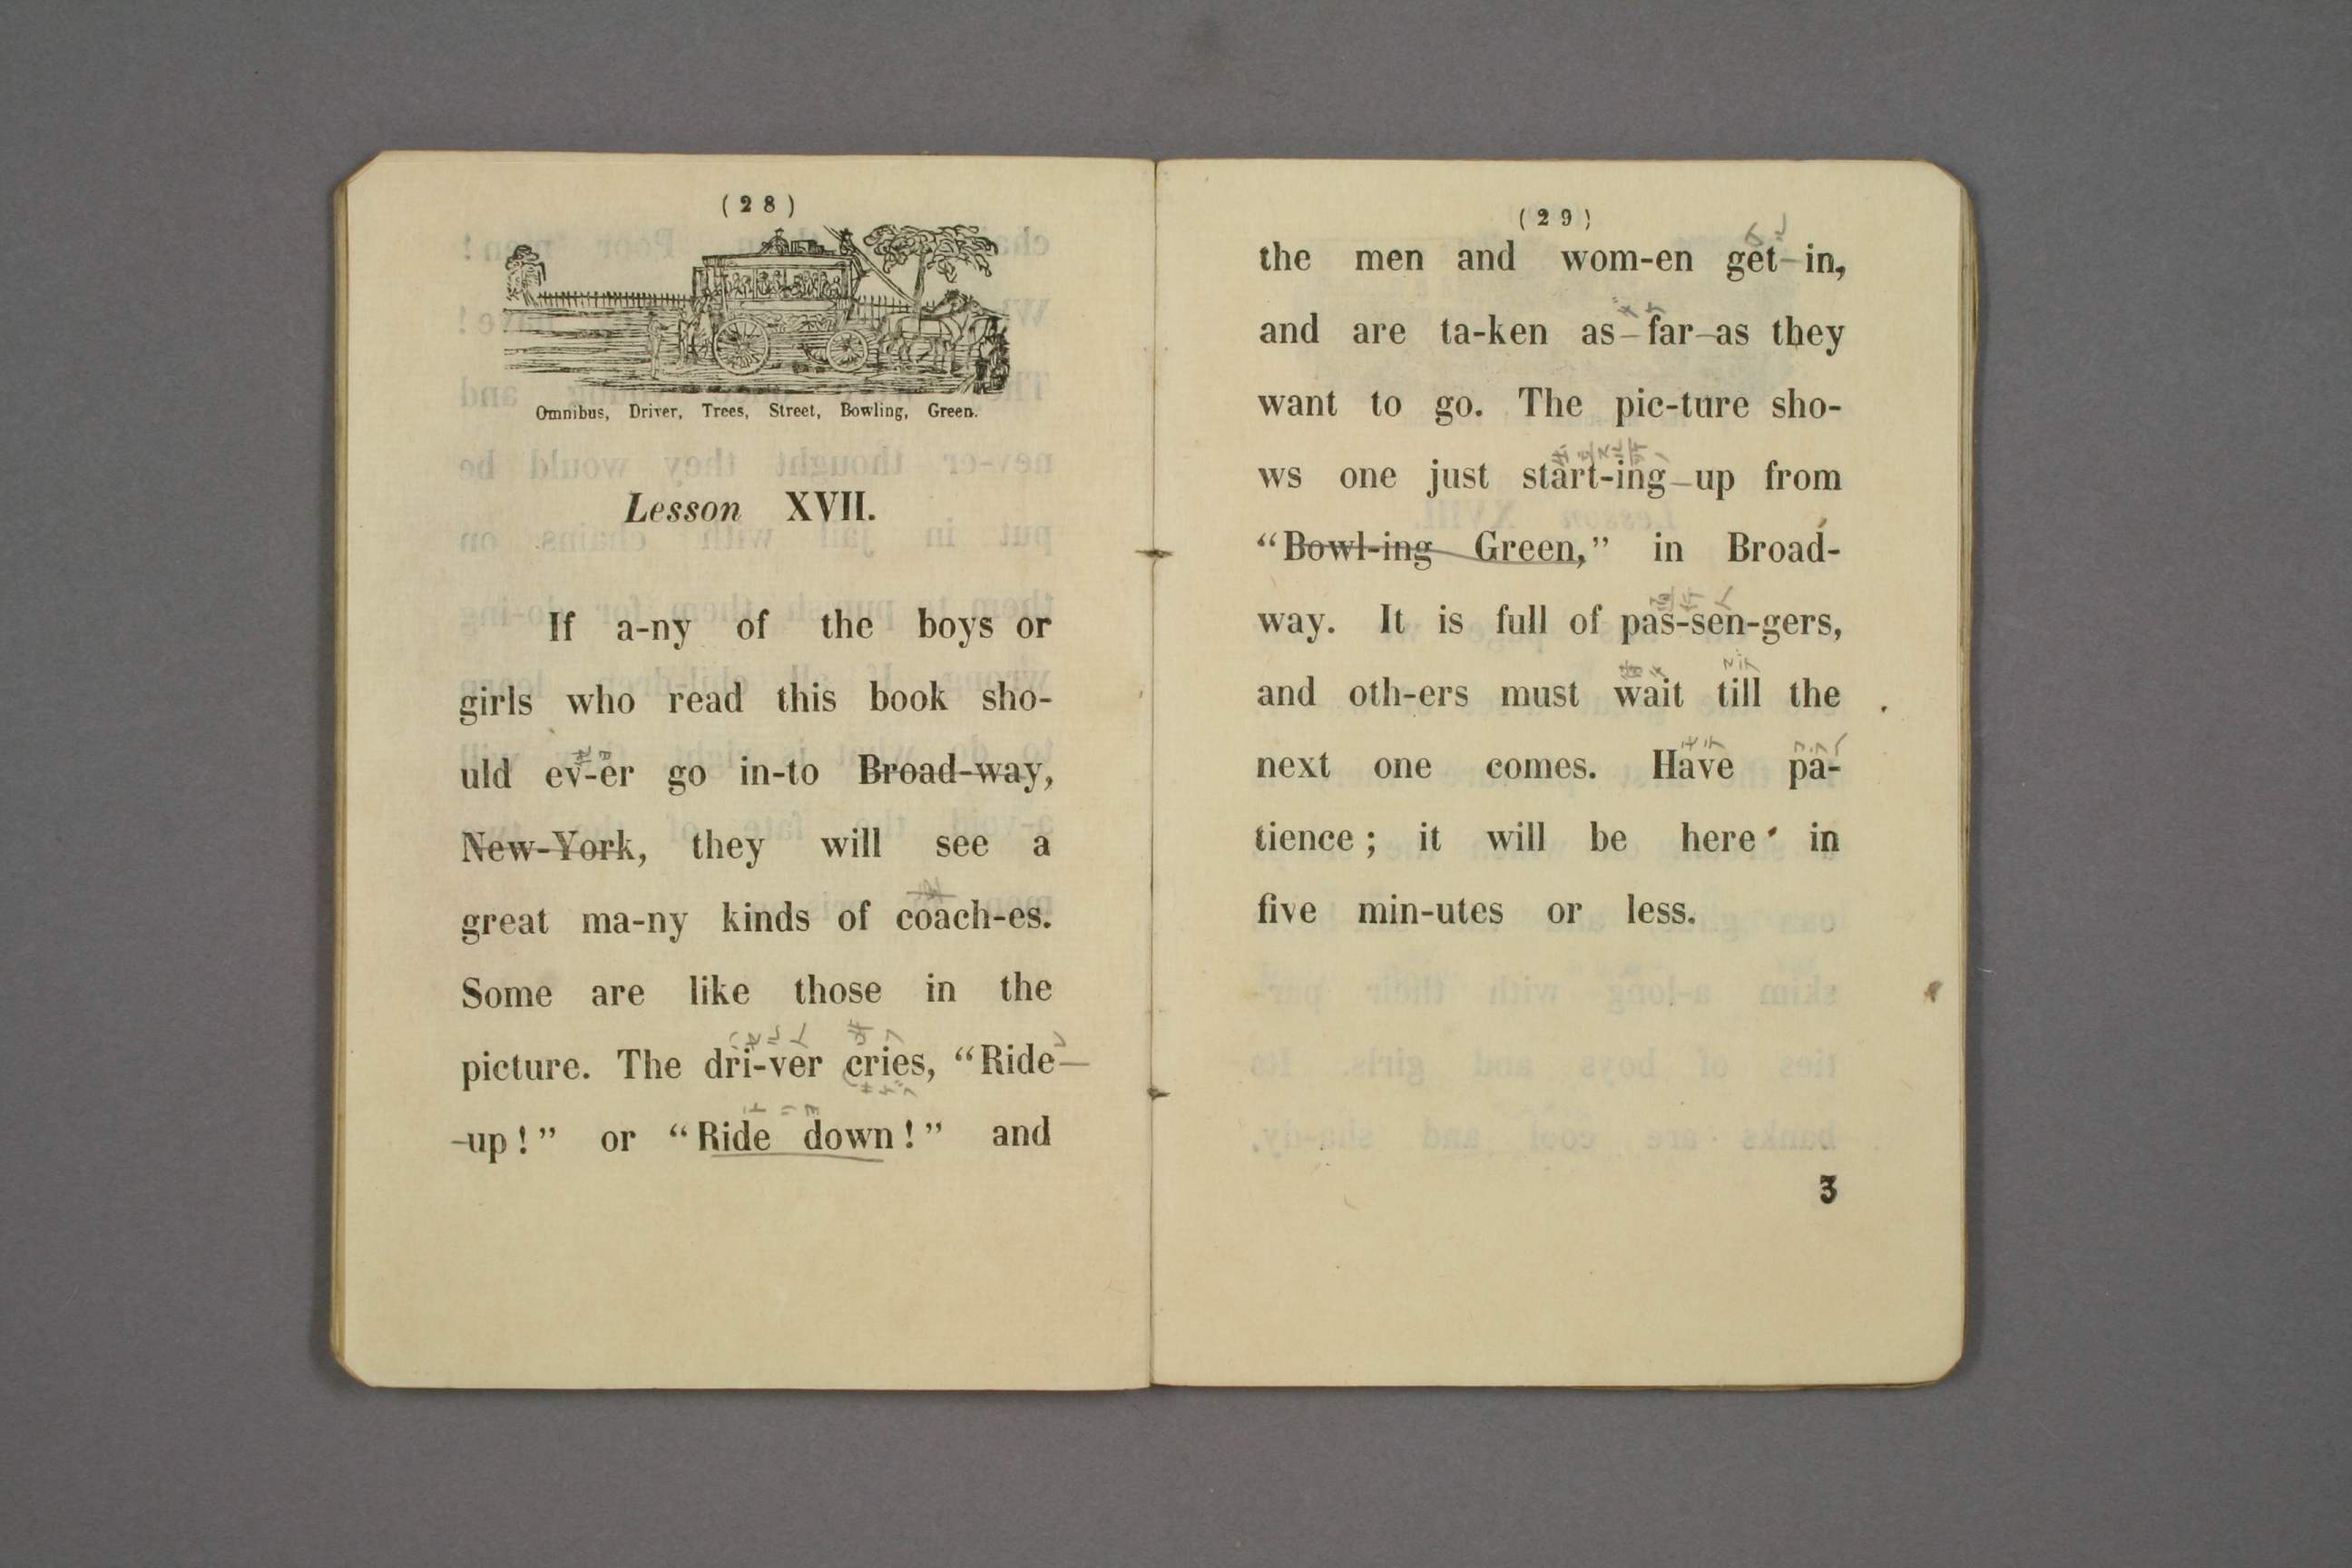 (28)
Omnibus, Driver, Trees, Street, Bowling, Green.
Lesson XVII.
If a-ny of the boys or
girls who read this book sho-
uld ev-er go in-to Broad-way,
New-York, they will see a
great ma-ny kinds of coach-es.
Some are like those in the
picture. The dri-ver cries, “Ride
up!” or “Ride down!” and
(29)
the men and wom-en get in,
and are ta-ken as far as they
want to go. The pic-ture sho-
ws one just start-ing up from
“Bowl-ing Green,” in Broad-
way. It is full of pas-sen-gers,
and oth-ers must wait till the
next one comes. Have pa-
tience; it will be here in
five min-utes or less.
3